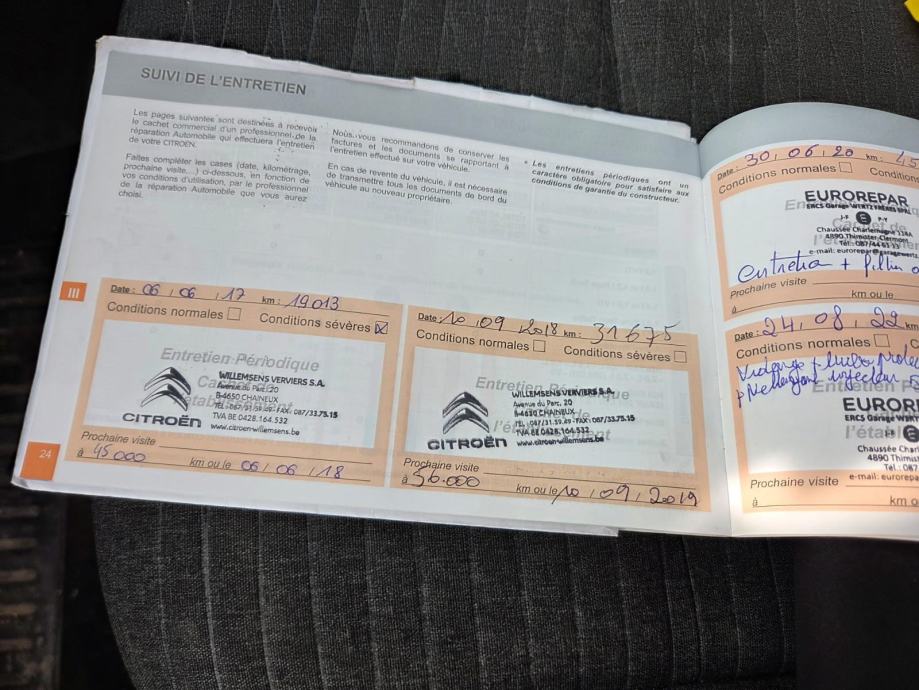 SUIVI DE L'ENTRETIEN
Les pages suivantes sont destinées à recevoir
le cachet commercial d'un professionnel de la
réparation Automobile qui effectuera l'entretien
de votre CITROËN.
Faites compléter les cases (date, kilométrage,
prochaine visite,...) ci-dessous, en fonction de
vos conditions d'utilisation, par le professionnel
de la réparation Automobile que vous aurez
choisi.
Nous vous recommandons de conserver les
factures et les documents se rapportant à
l'entretien effectué sur votre véhicule.
En cas de revente du véhicule, il est nécessaire
de transmettre tous les documents de bord du
véhicule au nouveau propriétaire.
* Les entretiens périodiques ont un
caractère obligatoire pour satisfaire aux
conditions de garantie du constructeur.
III
Date : 06 , 06 , 17 km : 19013
Conditions normales Conditions sévères
Entretien Périodique
Cachet de
l'établissement
CITROËN
WILLEMSENS VERVIERS S.A.
Avenue du Parc, 20
B-4650 CHAINEUX
TEL.: 087/31.59.49 - FAX.: 087/33.75.15
TVA BE 0428.164.532
www.citroen-willemsens.be
Prochaine visite
à 45000 km ou le 06 , 06 , 18
24
Date : 10 , 09 , 2018 km : 31675
Conditions normales Conditions sévères
Entretien Périodique
l'établissement
CITROËN
WILLEMSENS VERVIERS S.A.
Avenue du Parc, 20
B-4650 CHAINEUX
TEL.: 087/31.59.49 - FAX.: 087/33.75.15
TVA BE 0428.164.532
www.citroen-willemsens.be
Prochaine visite
à 56.000 km ou le 10 , 09 , 2019
Date : 30 , 06 , 20 km : 45
Conditions normales Conditions
EUROREPAR
ERCS Garage WERTZ FRÈRES SPRL
J-F E P-Y
Chaussée Charlemagne 114A
4890 Thimister-Clermont
Tél.: 087/44 61 33
e-mail: eurorepar@garagewertz
entretien + filtre
Prochaine visite
à km ou le
Date : 24 , 08 , 22 km
Conditions normales C
Vidange +
Nettoyant injecteur
Entretien P
EUROR
ERCS Garage WERT
l'établ
Chaussée Char
4890 Thimist
Tél.: 087
e-mail: eurorepa
Prochaine visite
à km o